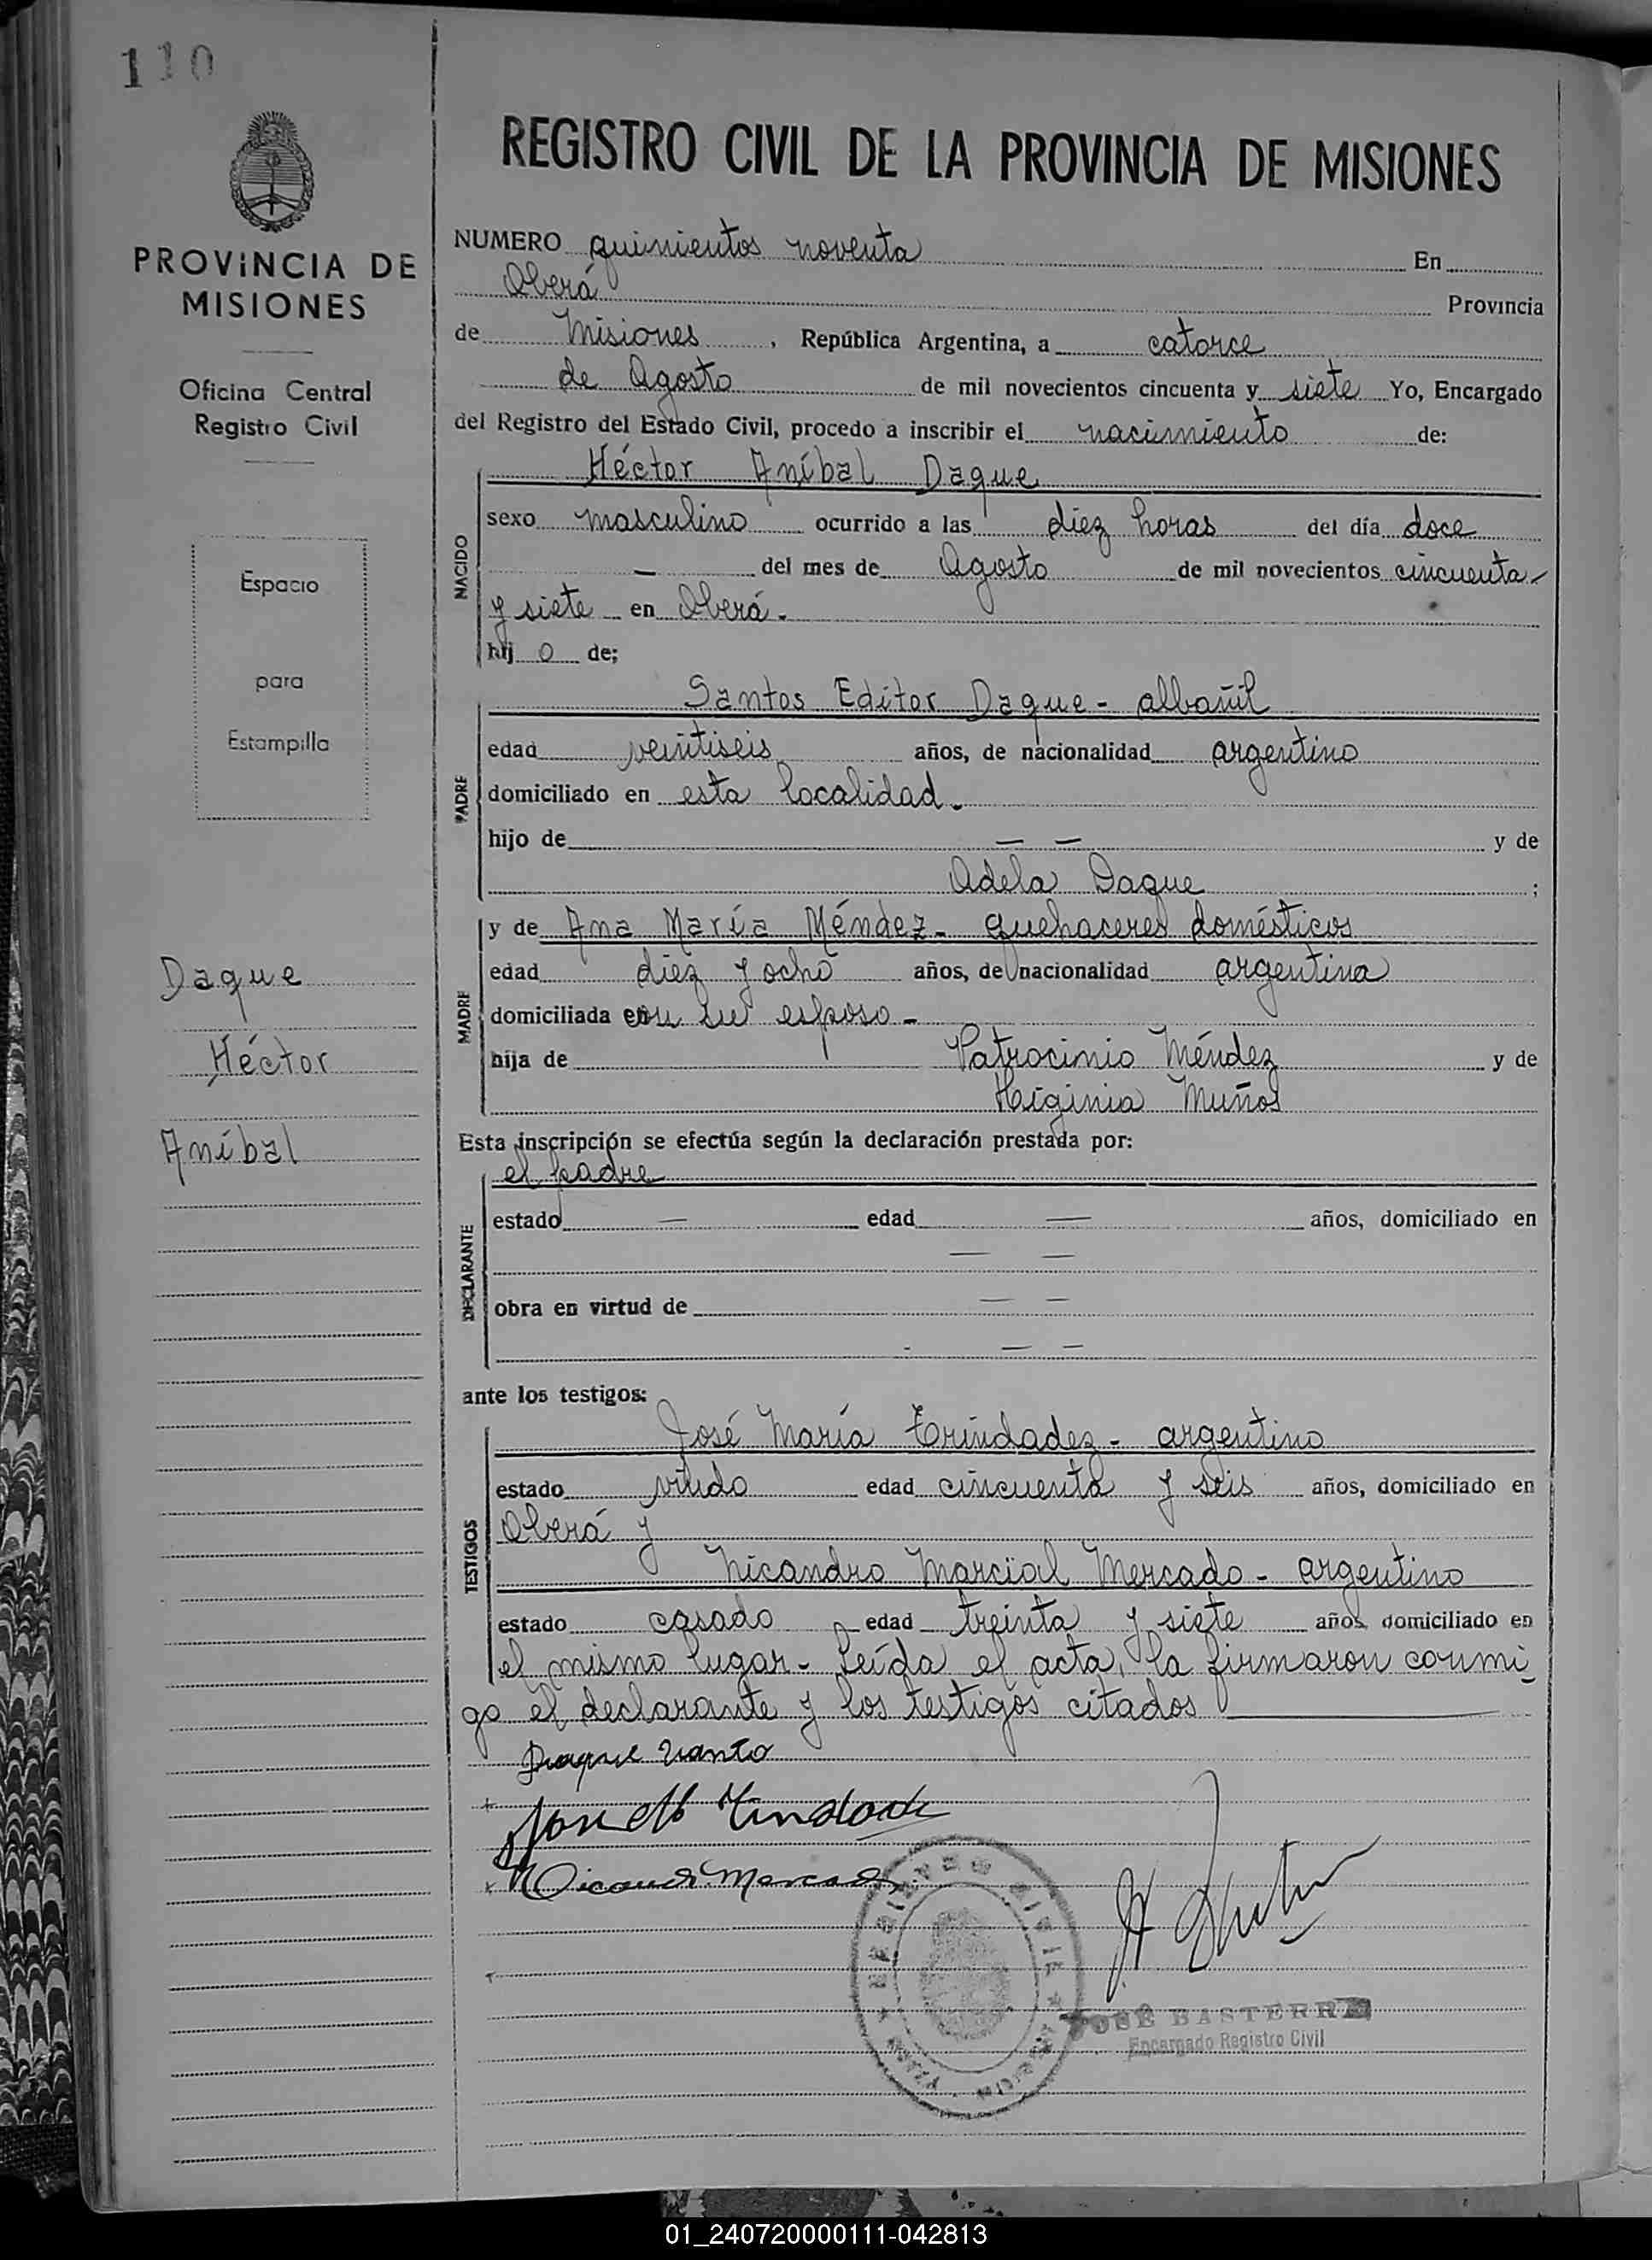 110
PROVINCIA DE
MISIONES
Oficina Central
Registro Civil
Espacio
para
Estampilla
Daque
Héctor
Aníbal
REGISTRO CIVIL DE LA PROVINCIA DE MISIONES
NUMERO quinientos noventa En
Oberá Provincia
de Misiones, República Argentina, a catorce
de Agosto de mil novecientos cincuenta y siete Yo, Encargado
del Registro del Estado Civil, procedo a inscribir el nacimiento de:
NACIDO
Héctor Aníbal Daque
sexo masculino ocurrido a las diez horas del día doce
— del mes de Agosto de mil novecientos cincuenta
y siete en Oberá.
hij o de;
PADRE
Santos Editor Daque - albañil
edad veintiseis años, de nacionalidad argentino
domiciliado en esta localidad.
hijo de — — y de
Adela Daque ;
MADRE
y de Ana María Méndez - quehaceres domésticos
edad diez y ocho años, de nacionalidad argentina
domiciliada con su esposo -
hija de Patrocinio Méndez y de
Higinia Muñoz
Esta inscripción se efectúa según la declaración prestada por:
DECLARANTE
el padre
estado — edad — años, domiciliado en
— —
obra en virtud de — —
— —
ante los testigos:
TESTIGOS
José María Trindadez - argentino
estado viudo edad cincuenta y seis años, domiciliado en
Oberá y
Nicandro Marcial Mercado - argentino
estado casado edad treinta y siete años domiciliado en
el mismo lugar - Leída el acta, la firmaron conmi-
go el declarante y los testigos citados
Daque Santo
JOSÉ BASTERRA
Encargado Registro Civil
01_240720000111-042813